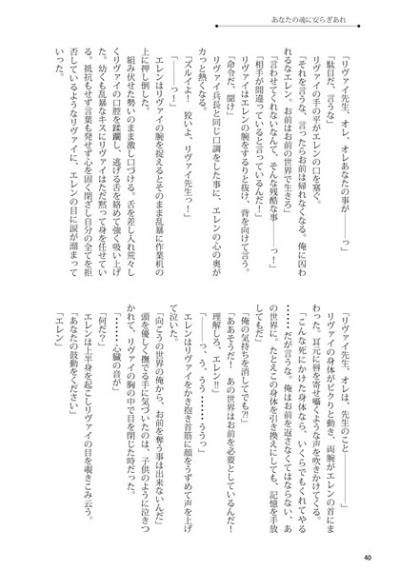 あなたの魂に安らぎあれ
「リヴァイ先生、オレ、オレあなたの事が――――っ」
「駄目だ、言うな」
リヴァイの手の平がエレンの口を塞ぐ。
「それを言うな、言ったらお前は帰れなくなる。俺に囚わ
れるなエレン。お前はお前の世界で生きろ」
「言わせてくれないなんて、そんな残酷な事――――っ！」
「相手が間違っていると言っているんだ！」
リヴァイはエレンの腕をするりと抜け、背を向けて言う。
「命令だ、聞け」
リヴァイ兵長と同じ口調をした事に、エレンの心の奥が
カっと熱くなる。
「ズルイよ！　狡いよ、リヴァイ先生っ！」
「――――っ！」
エレンはリヴァイの腕を捉えるとそのまま乱暴に作業机の
上に押し倒した。
組み伏せた勢いのまま激し口づける。舌を差し入れ荒々し
くリヴァイの口腔を蹂躙し、逃げる舌を絡めて強く吸い上げ
た。幼くも乱暴なキスにリヴァイはただ黙って身を任せてい
る。抵抗もせず言葉も発せず心を固く閉ざし自分の全てを拒
否しているようなリヴァイに、エレンの目に涙が溜まって
いった。
「リヴァイ先生、オレは、先生のこと――――――」
リヴァイの身体がビクりと動き、両腕がエレンの首にま
わった。耳元に唇を寄せ囁くような声を吹きかけてくる。
「こんな死にかけた身体なら、いくらでもくれてやる
・・・・・・だが言うな。俺はお前を返さなくてはならない、あ
の世界に。たとえこの身体を引き換えにしても、記憶を手放
してもだ」
「俺の気持ちを消してでも?!」
「ああそうだ！　あの世界はお前を必要としているんだ！
理解しろ、エレン!!」
「――っ、う、うう・・・・・・ううっ」
エレンはリヴァイをかき抱き首筋に顔をうずめて声を上げ
て泣いた。
「向こうの世界の俺から、お前を奪う事は出来ないんだ」
頭を優しく撫でる手に気づいたのは、子供のように泣きつ
かれて、リヴァイの胸の中で目を閉じた時だった。
「・・・・・・心臓の音が」
「何だ？」
エレンは上半身を起こしリヴァイの目を覗きこみ云う。
「あなたの鼓動をください」
「エレン」
40